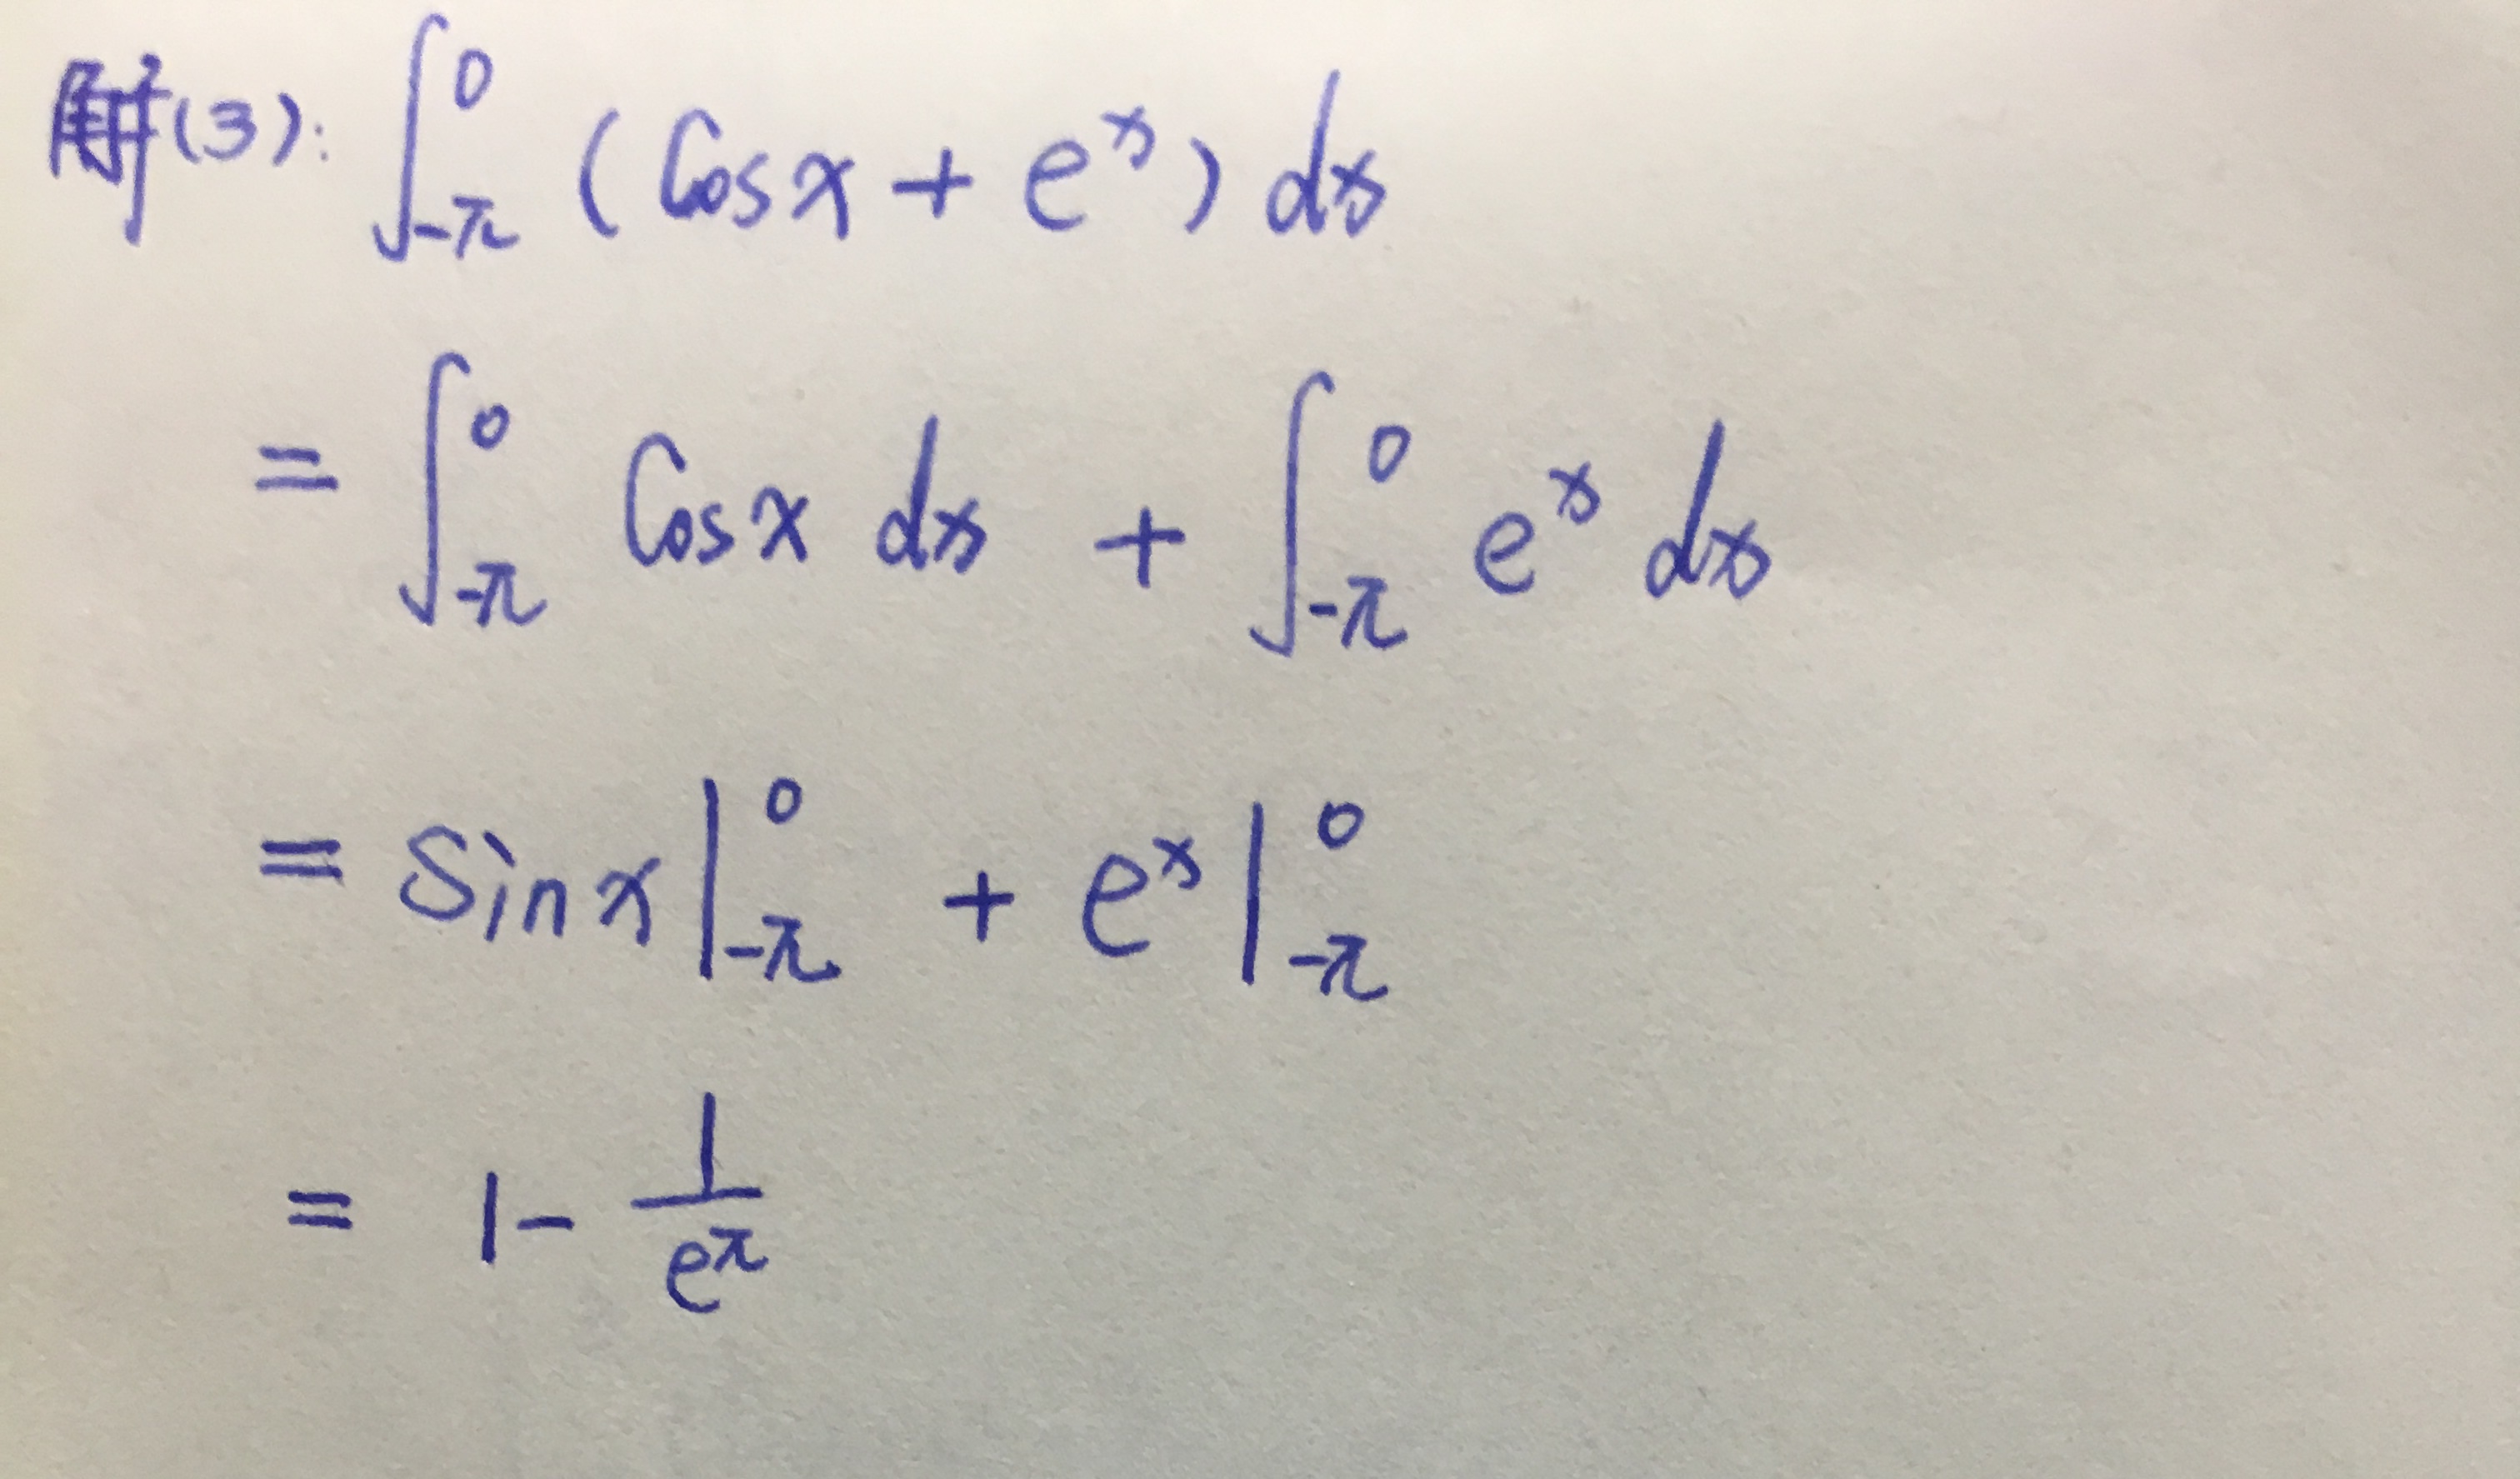 解(3): ∫_{-π}^{0} (Cosx + e^x) dx
= ∫_{-π}^{0} Cosx dx + ∫_{-π}^{0} e^x dx
= Sinx|_{-π}^{0} + e^x|_{-π}^{0}
= 1 - \frac{1}{e^π}